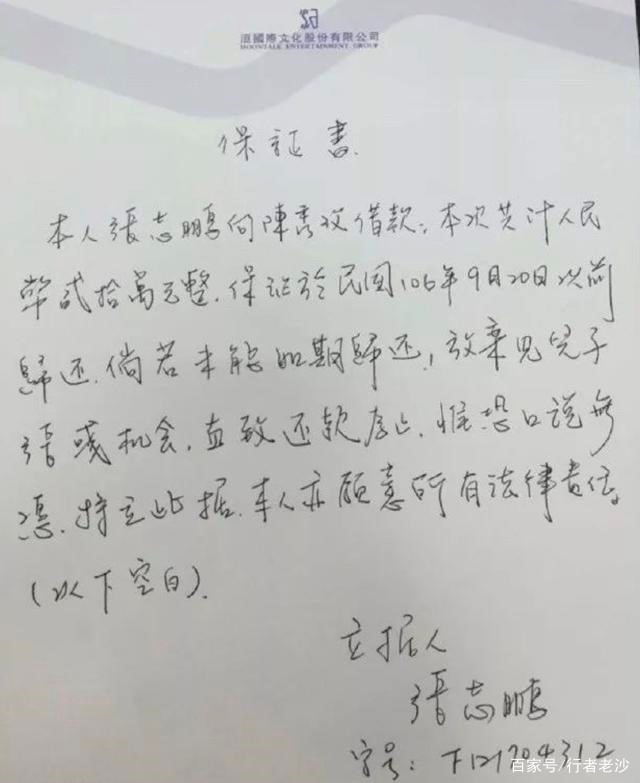 洹國際文化股份有限公司
MOONTALE ENTERTAINMENT GROUP
保证書.
本人張志鵬向陳喬玫借款,本次共计人民
幣貳拾萬元整.保证於民国106年9月20日以前
歸还.倘若未能如期歸还,放棄見兒子
張彧机会,直致还款為止.惟恐口说無
憑.特立此据.本人亦願意所有法律责任。
(以下空白).
立据人
張志鵬
字号:F121704312
百家号/行者老沙